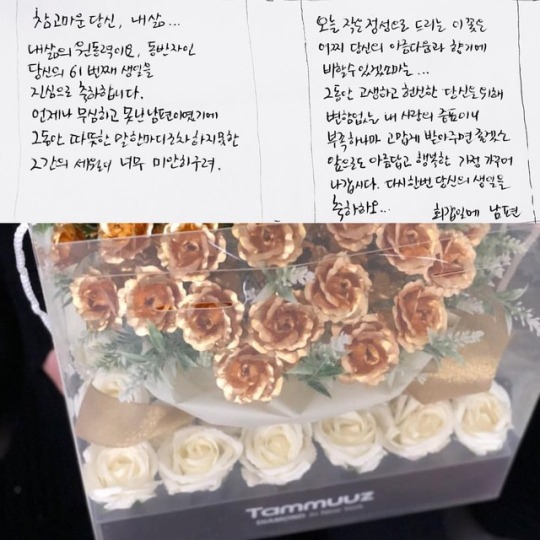 참 고마운 당신, 내 삶...
내 삶의 원동력이요, 동반자인
당신의 61 번째 생일을
진심으로 축하합니다.
언제나 무심하고 못난 남편이였기에
그동안 따뜻한 말 한마디조차 하지 못한
그간의 세월이 너무 미안하구려.
오늘 작은 정성으로 드리는 이 꽃을
어찌 당신의 아름다움과 향기에
비할 수 있겠소마는...
그동안 고생하고 헌신한 당신을 위해
변함없는 내 사랑의 증표이니
부족하나마 고맙게 받아주면 좋겠소
앞으로도 아름답고 행복한 가정 가꾸어
나갑시다. 다시한번 당신의 생일을
축하하오... 회갑일에 남편
Tammuuz
DIAMOND in New York